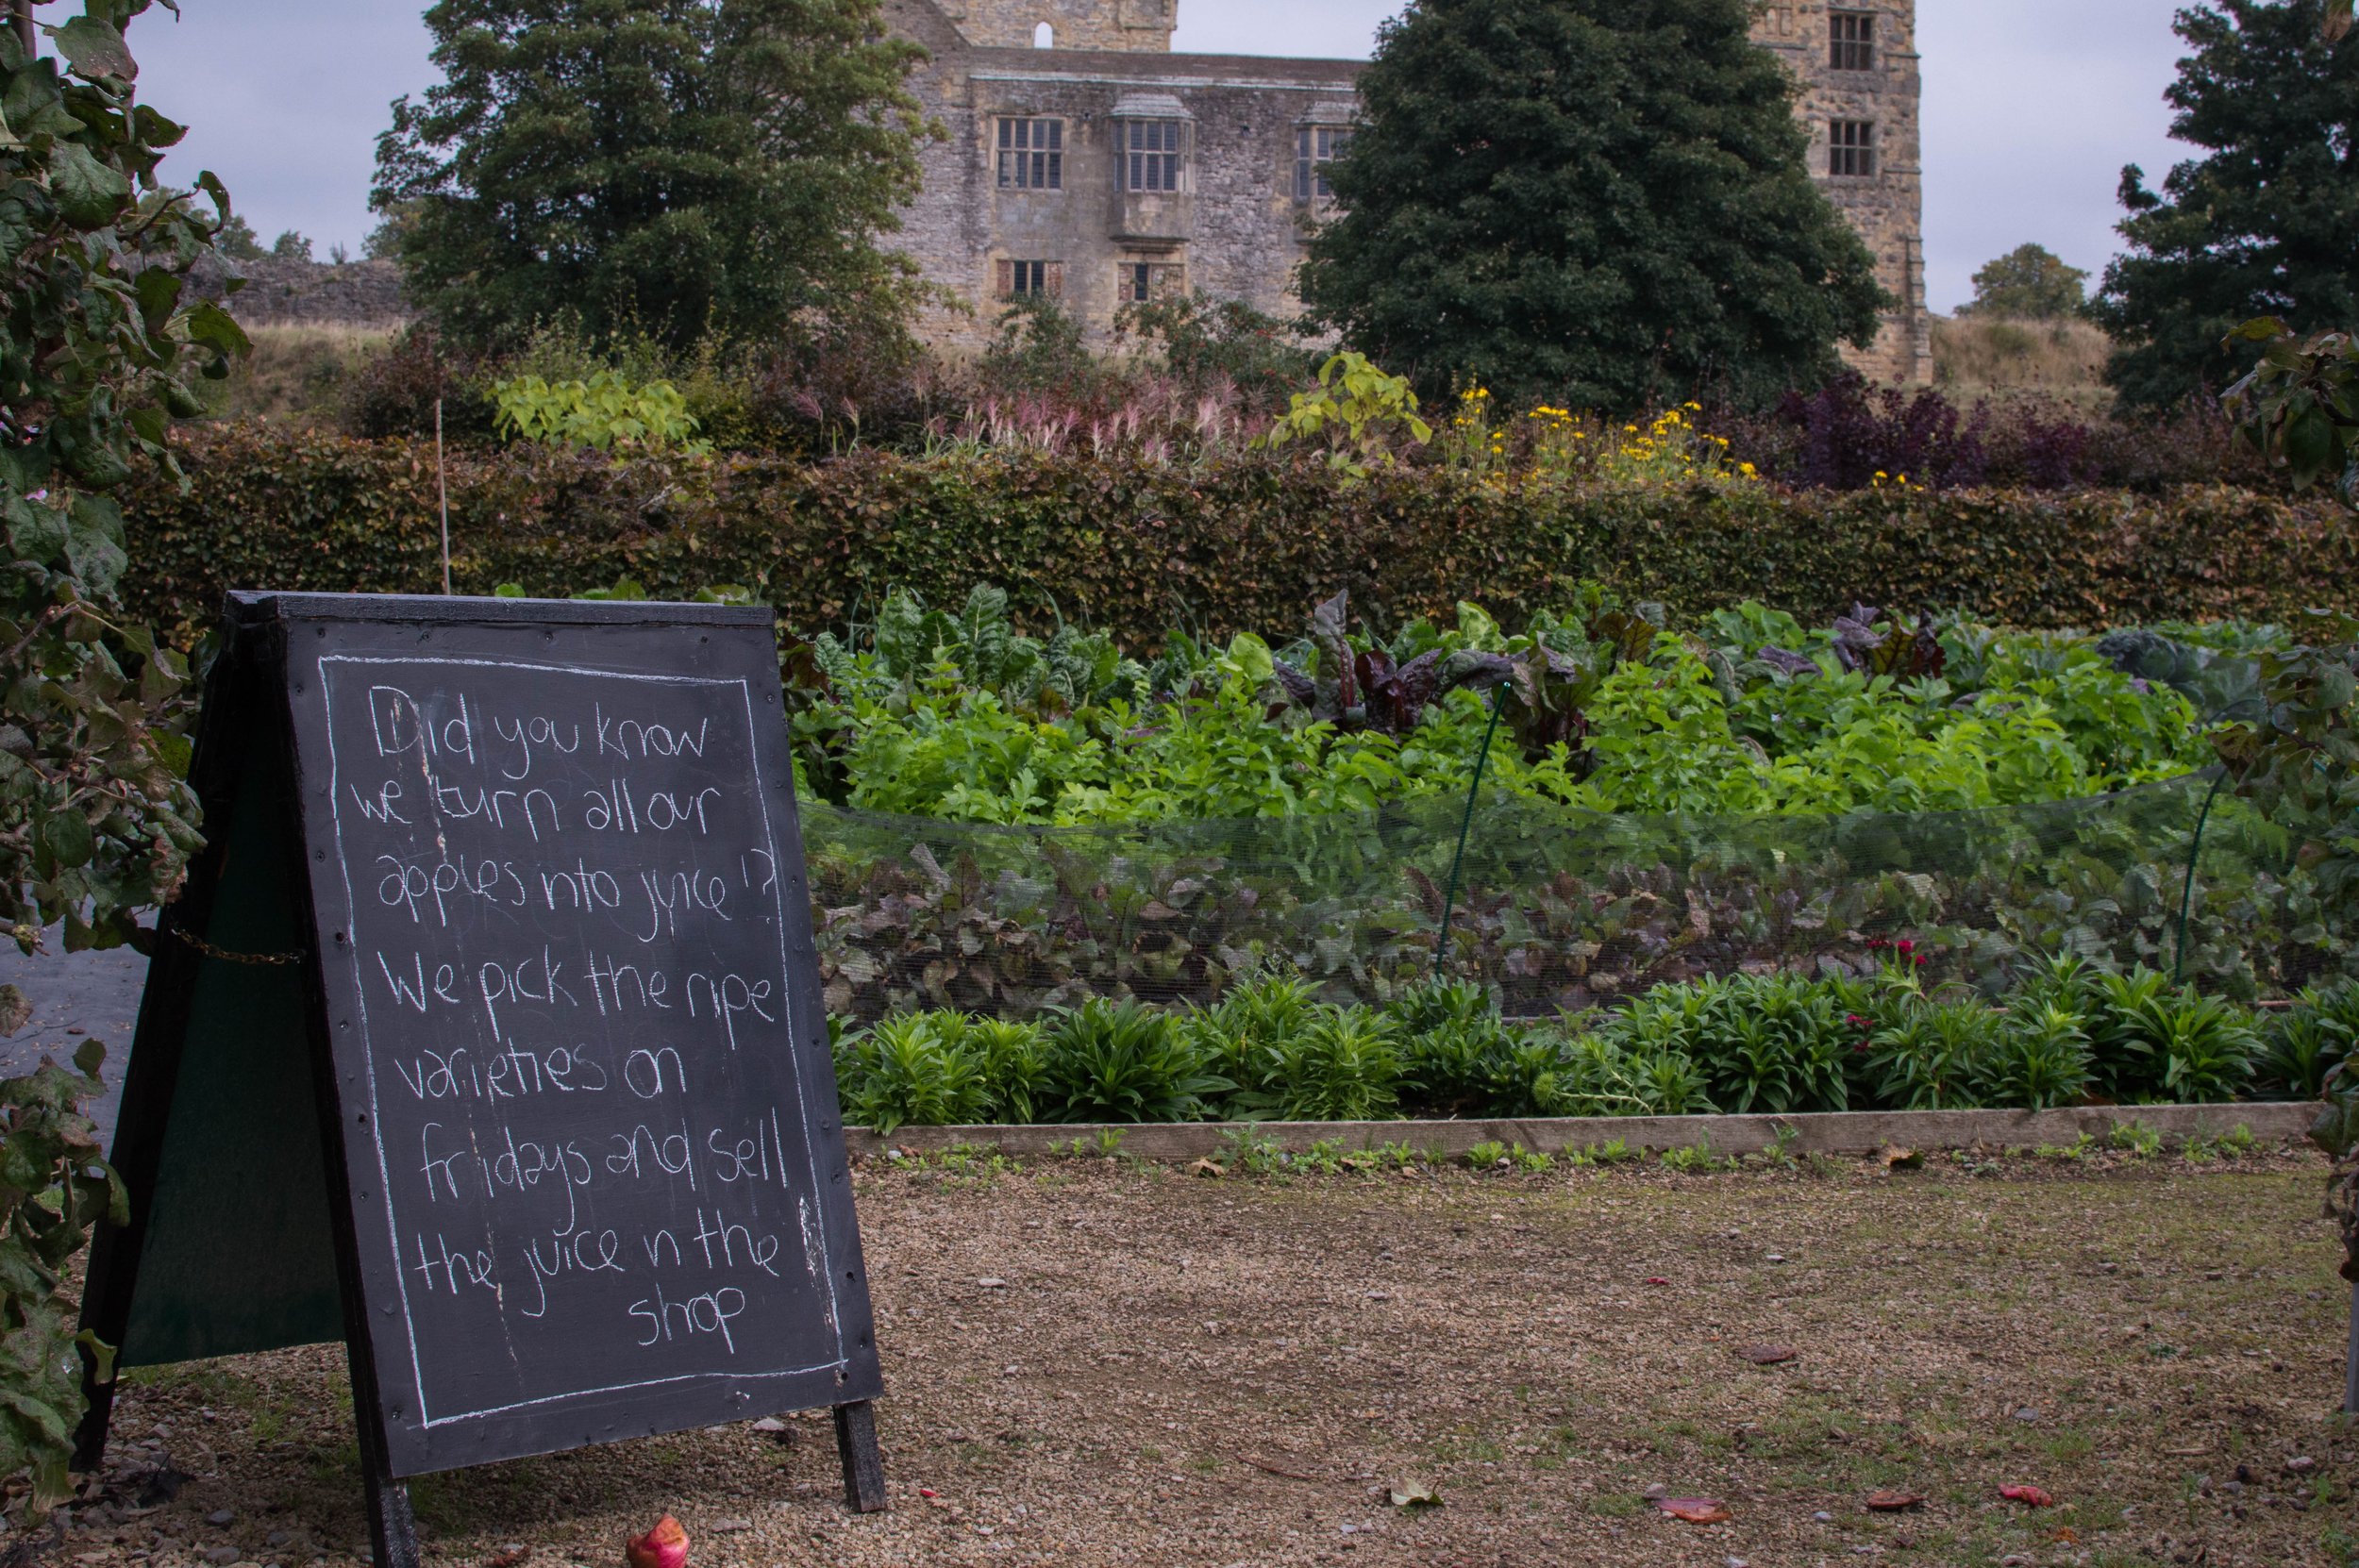 Did you know
we turn all our
apples into juice!?
We pick the ripe
varieties on
fridays and sell
the juice in the
shop